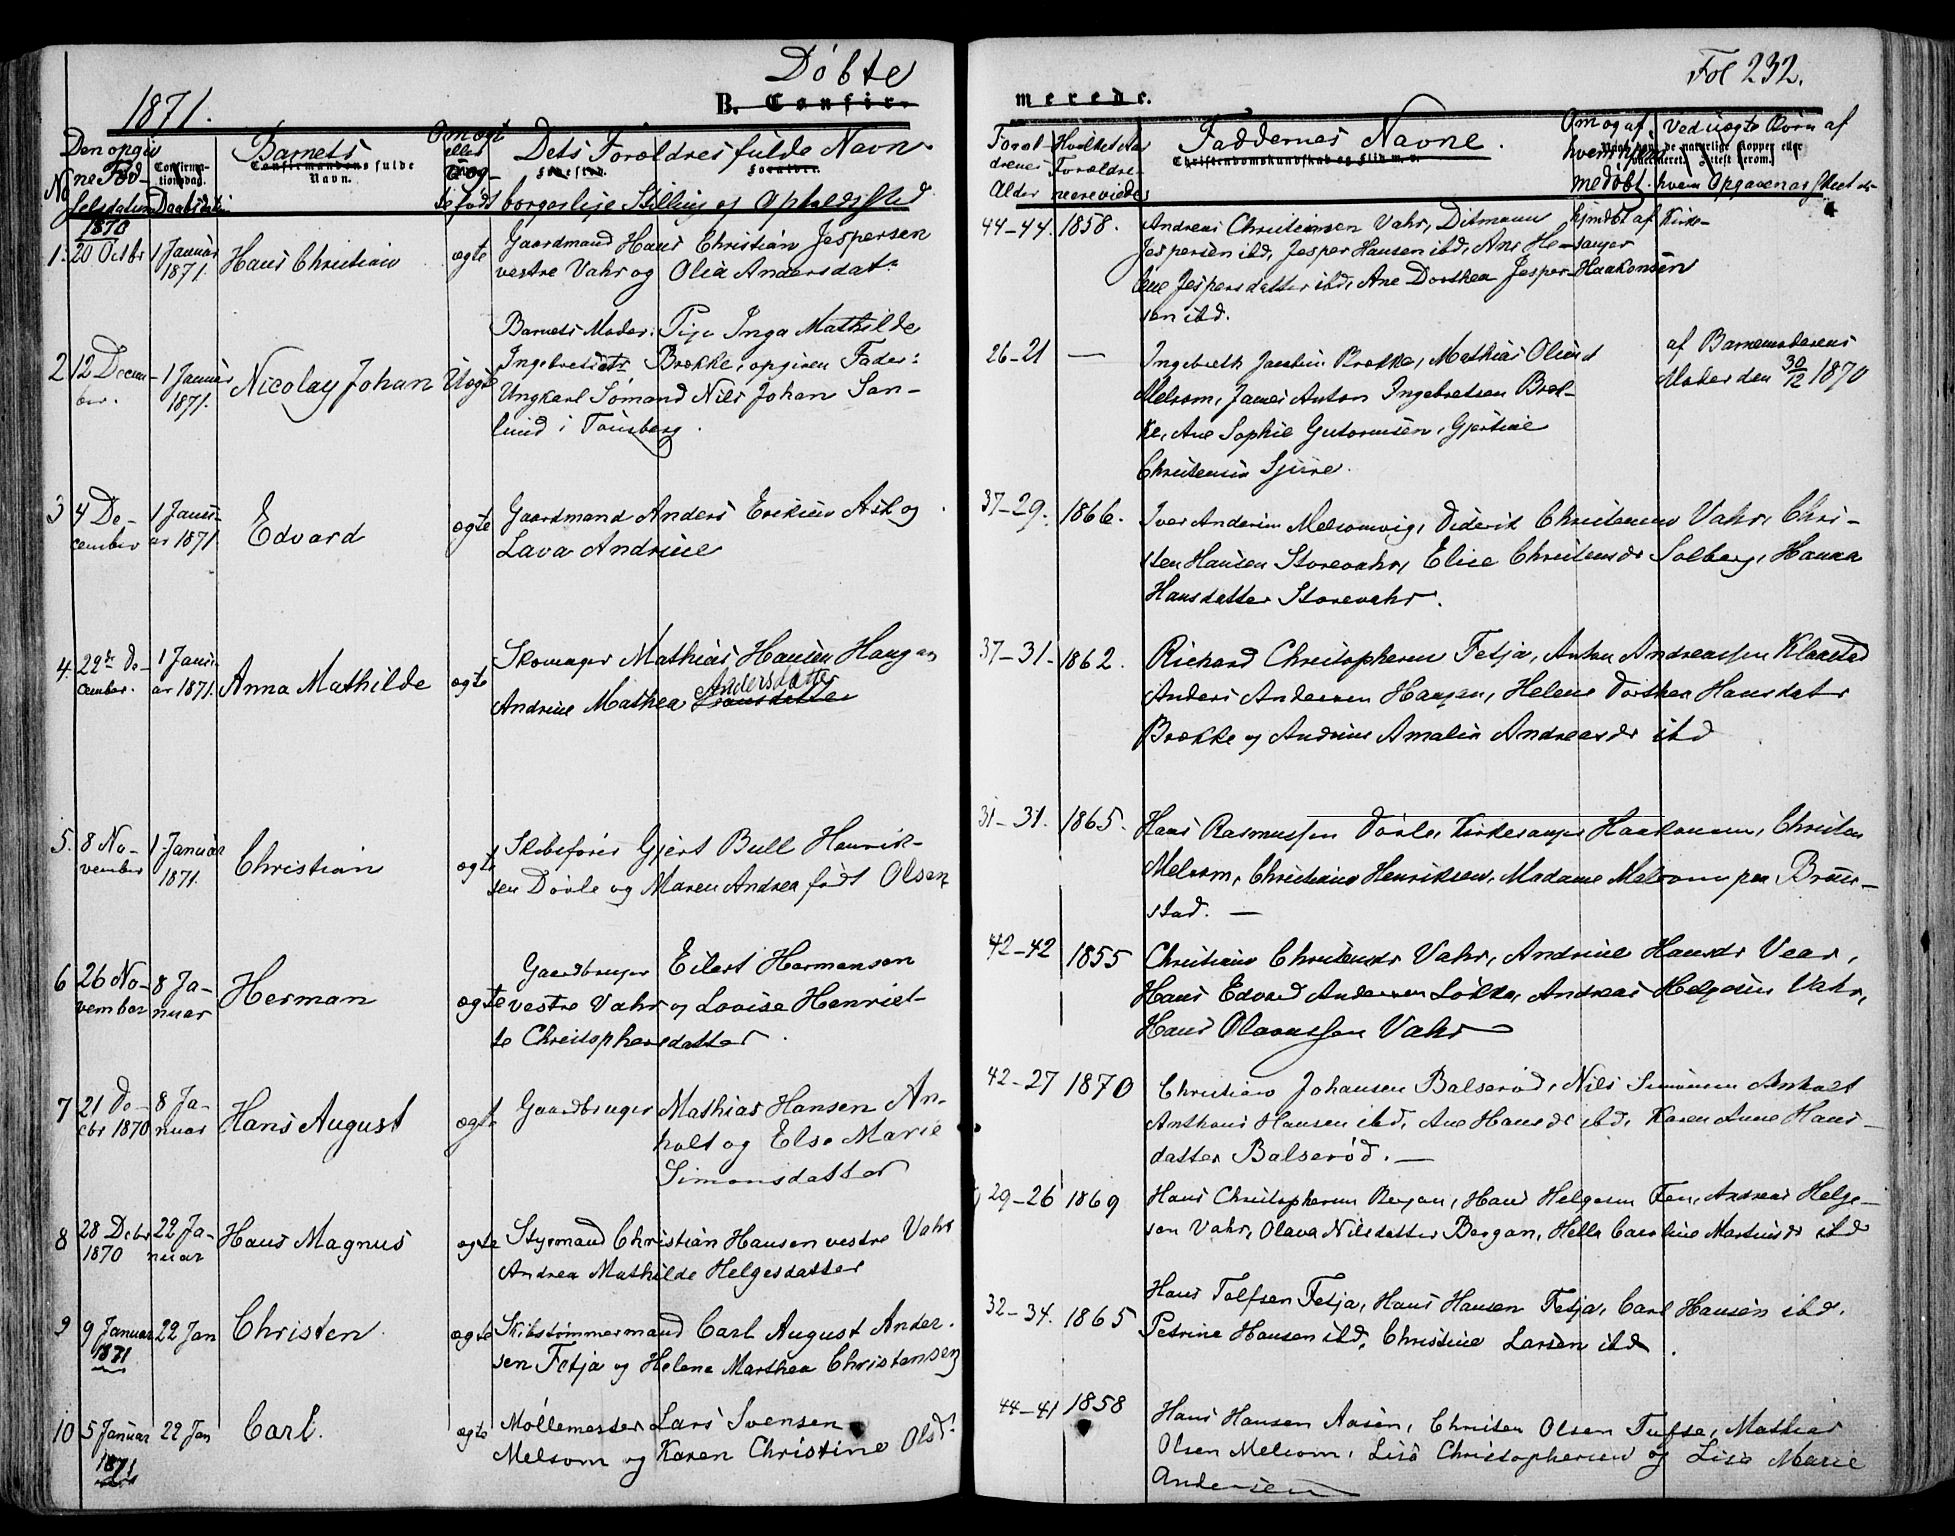 1871.
Døbte
B. Confir-
merede.
Fol 232.
No
Den opgiv
ne Fød-
selsdatum
Confirma-
tionsdag.
Daabsdatum
Barnets
Confirmandens fulde
Navn.
Om ægte
eller
uæg-
te født
Dets Forældres fulde Navn
Fødested.
Forældre.
borgerlige Stilling og Opholdssted
Foræl-
drenes
Alder
Hvilket Aar
Forældre-
ne ere viede
Faddernes Navne.
Christendomskundskab og Flid m. v.
Om og af
hvem hjem-
medøbt.
Ved uægte Børn af
hvem Opgaven er skeet
1870
1. 20 Octbr 1 Januar 1871. Hans Christian ægte
Gaardmand Hans Christian Jespersen
vestre Vahr og Olia Andersdatr
44-44. 1858.
Andreas Christensen Vahr, Ditmann
Jespersen ibd, Jesper Hansen ibd, Ane He-
lene Jespersdatter ibd, Ane Dorthea Jesper-
sen ibd.
hjmdøbt af Kirke-
sanger
Haakonsen
2 12 Decem-
ber. 1 Januar 1871. Nicolay Johan Uægte
Barnets Moder: Pige Inga Mathilde
Ingebretsdtr Brække, opgiven Fader:
Ungkarl Sømand Nils Johan San-
lund i Tønsberg.
26-21 —
Ingebreth Jacobsen Brække, Mathias Olsen
Melsom, James Anton Ingebretsen Bræk-
ke, Ane Sophie Gutormsen, Gjertine
Christensen
af Barnemoderens
Moder den 30/12 1870
3 4 De-
cember 1 Janu-
ar 1871. Edvard ægte
Gaardmand Anders Eriksen Ask og
Lava Andrine
37-29. 1866.
Iver Andersen Melsomvig, Diderik Christensen Vahr, Chri-
sten Hansen Storevahr, Elise Christensdr Solberg, Hanna
Hansdatter Storevahr.
4. 22de De-
cember. 1 Janu-
ar 1871. Anna Mathilde ægte
Skomager Mathias Hansen Haugan
Andrine Mathea Andersdatter
37-31. 1862.
Richard Christophersen Fetja, Anton Andreassen Klavestad
Anders Andersen Haugan, Helene Dorthea Hansdatr
Brække og Andrine Amalia Andreasdr ibd
5. 8 No-
vember 1 Januar 1871. Christian ægte
Skibsfører Gjert Bull Henrik-
sen Dørle og Maren Andrea født Olsen
31-31. 1865.
Hans Rasmussen Dørle, Kirkesanger Haakonsen, Christen
Melsom, Christiane Henriksen, Madame Melsom paa Brun-
stad. —
6 26 No-
vember 8 Ja-
nuar Herman ægte
Gaardbruger Eilert Hermansen
vestre Vahr og Lovise Henriet-
te Christophersdatter.
42-42 1855
Christiane Christensdr Vahr, Andrine Hansdr Vear,
Hans Edvard Andersen Løkke, Andreas Helgesen Vahr,
Hans Olavessen Vahr
7 21 De-
cbr 1870 8 Ja-
nuar Hans August ægte
Gaardbruger Mathias Hansen An-
holt og Else Marie
Simonsdatter
42-27 1870
Christian Johansen Balserød, Nils Simonsen Anholt
Anthon Hansen ibd, Ane Hansdr ibd, Karen Anne Hans-
datter Balserød. —
8 28 Decbr
1870 22 Ja-
nuar Hans Magnus ægte
Styrmand Christian Hansen vestre Vahr
Andrea Mathilde Helgesdatter
29-26 1869
Hans Christophersen Bergan, Hans Helgesen Fen, Andreas Helge-
sen Vahr, Olava Nilsdatter Bergan, Helle Caroline Martinsdr ibd
9 9 Januar
1871 22 Jan Christen ægte
Skibstømmermand Carl August Ander-
sen Fetja og Helene Marthea Christensen
32-34. 1865
Hans Tolfsen Fetja, Hans Hansen Fetja, Carl Hansen ibd.
Petrine Hansen ibd, Christine Larsen ibd.
10 5 Januar
1871 22 Jan Carl. ægte
Møllemester Lars Svensen
Melsom og Karen Christine Olsd.
44-41 1858
Hans Hansen Aasen, Christen Olsen Tufte, Mathias
Olsen Melsom, Lise Christophersen og Lise Marie
Andersen